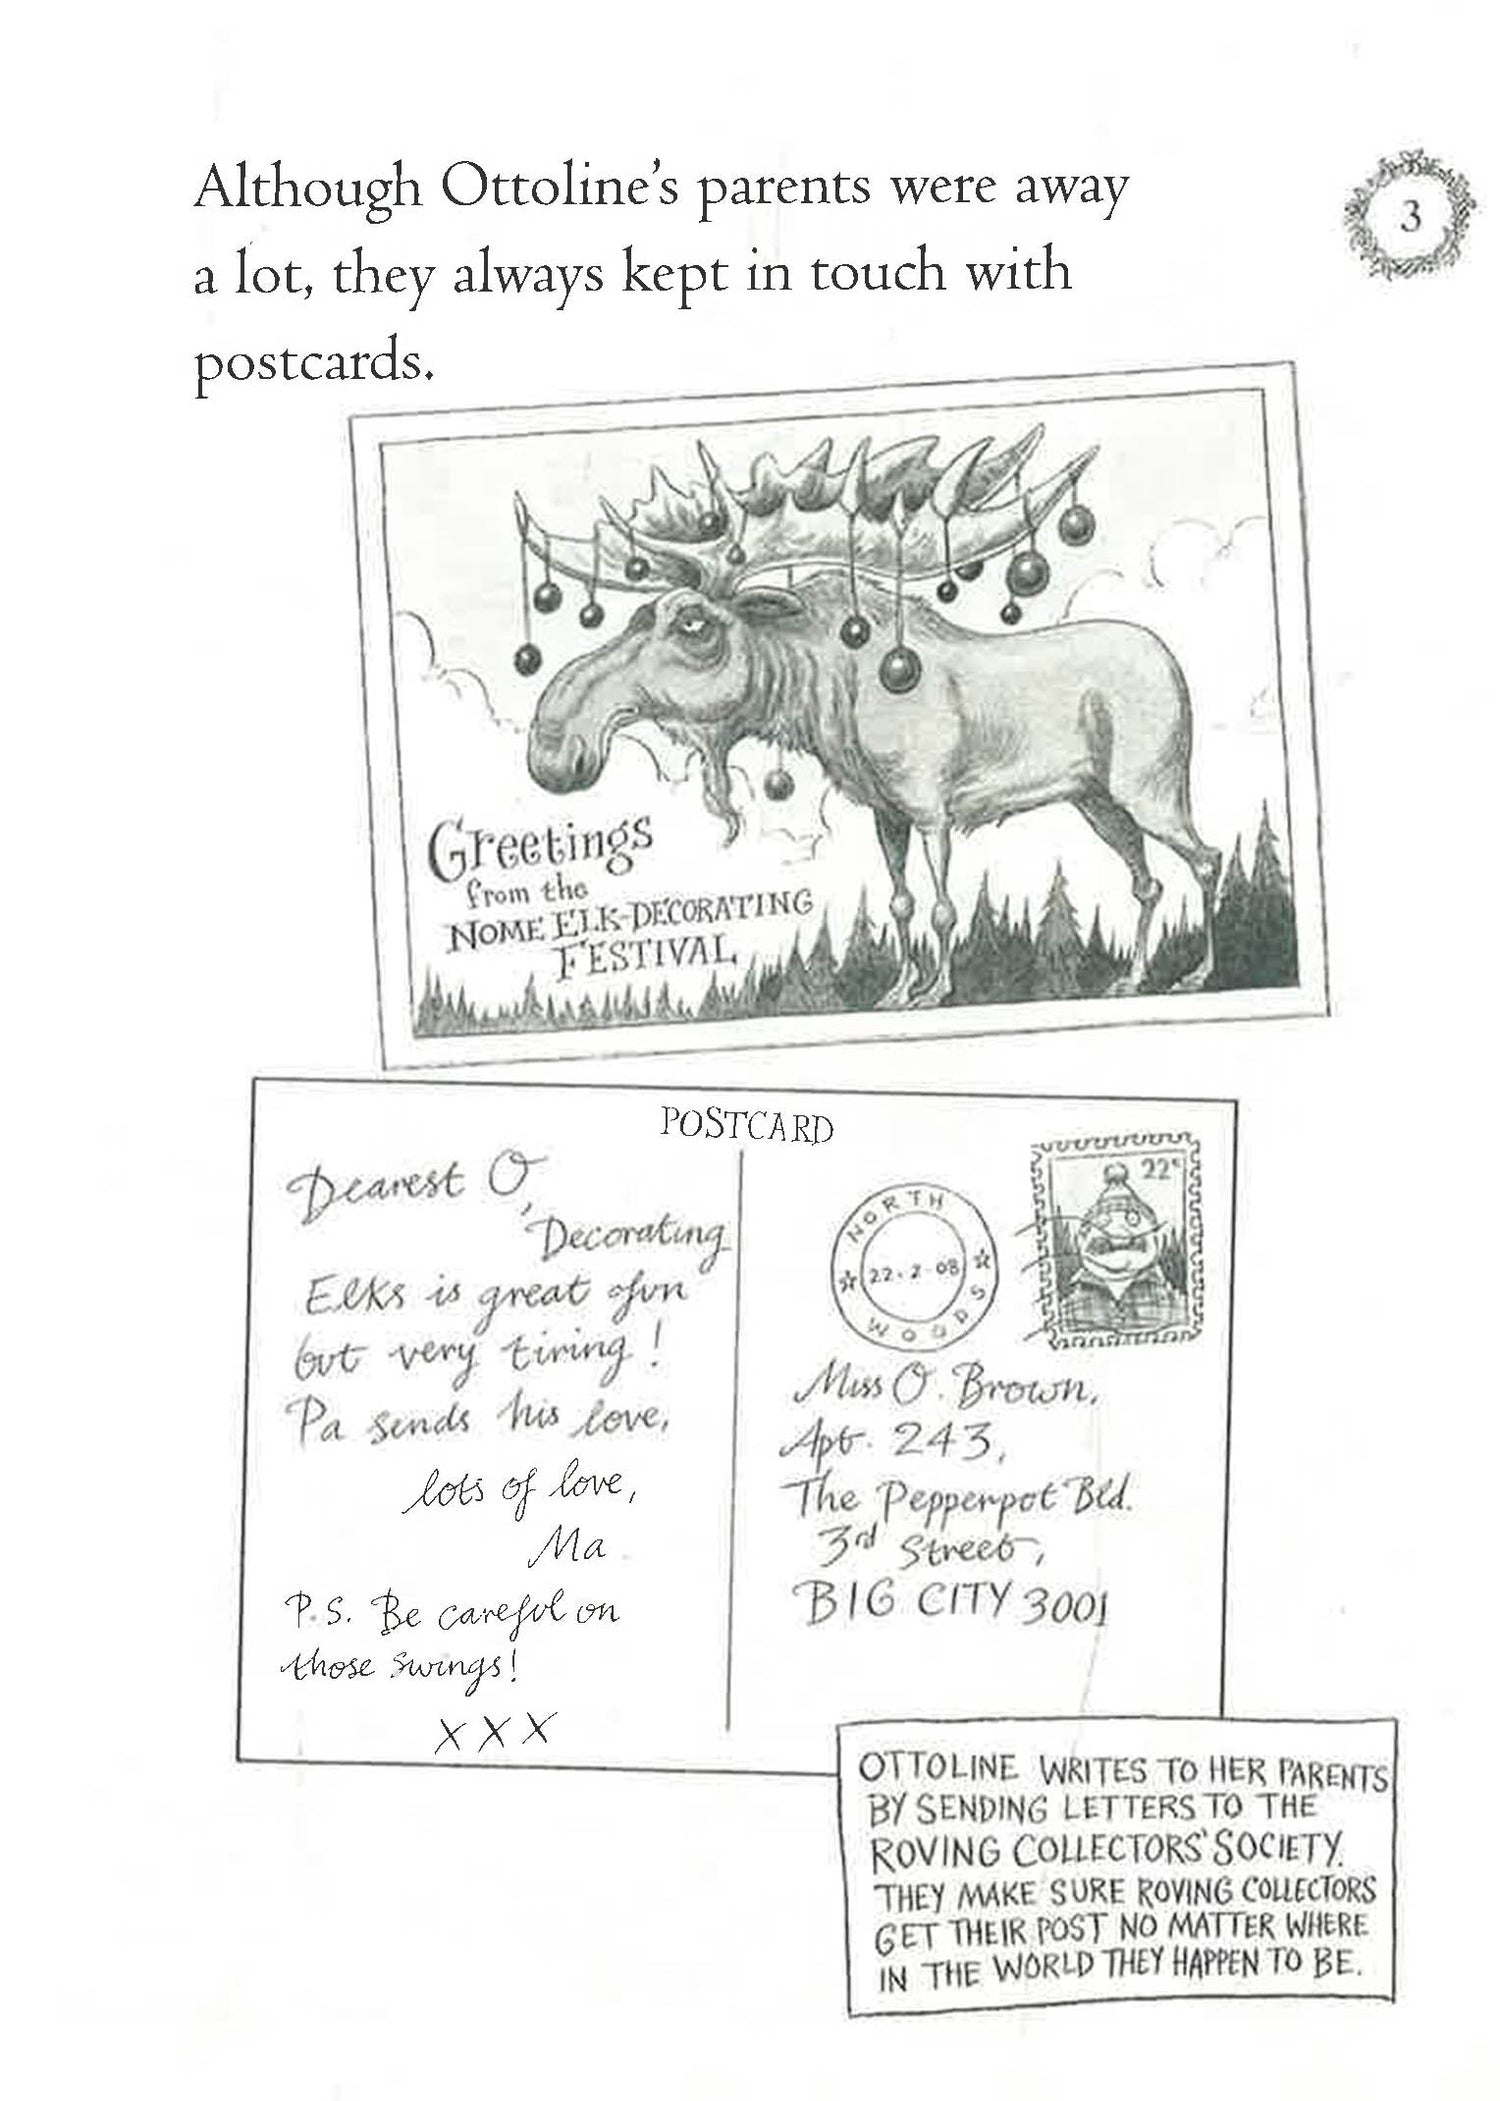 Although Ottoline's parents were away
a lot, they always kept in touch with
postcards.
3
Greetings
from the
NOME ELK-DECORATING
FESTIVAL
POSTCARD
Dearest O,
Decorating
Elks is great fun
but very tiring!
Pa sends his love,
lots of love,
Ma
P.S. Be careful on
those swings!
X X X
NORTH
22·2·08
WOODS
22c
Miss O. Brown,
Apt. 243,
The Pepperpot Bld.
3rd Street,
BIG CITY 3001
OTTOLINE WRITES TO HER PARENTS
BY SENDING LETTERS TO THE
ROVING COLLECTORS' SOCIETY.
THEY MAKE SURE ROVING COLLECTORS
GET THEIR POST NO MATTER WHERE
IN THE WORLD THEY HAPPEN TO BE.